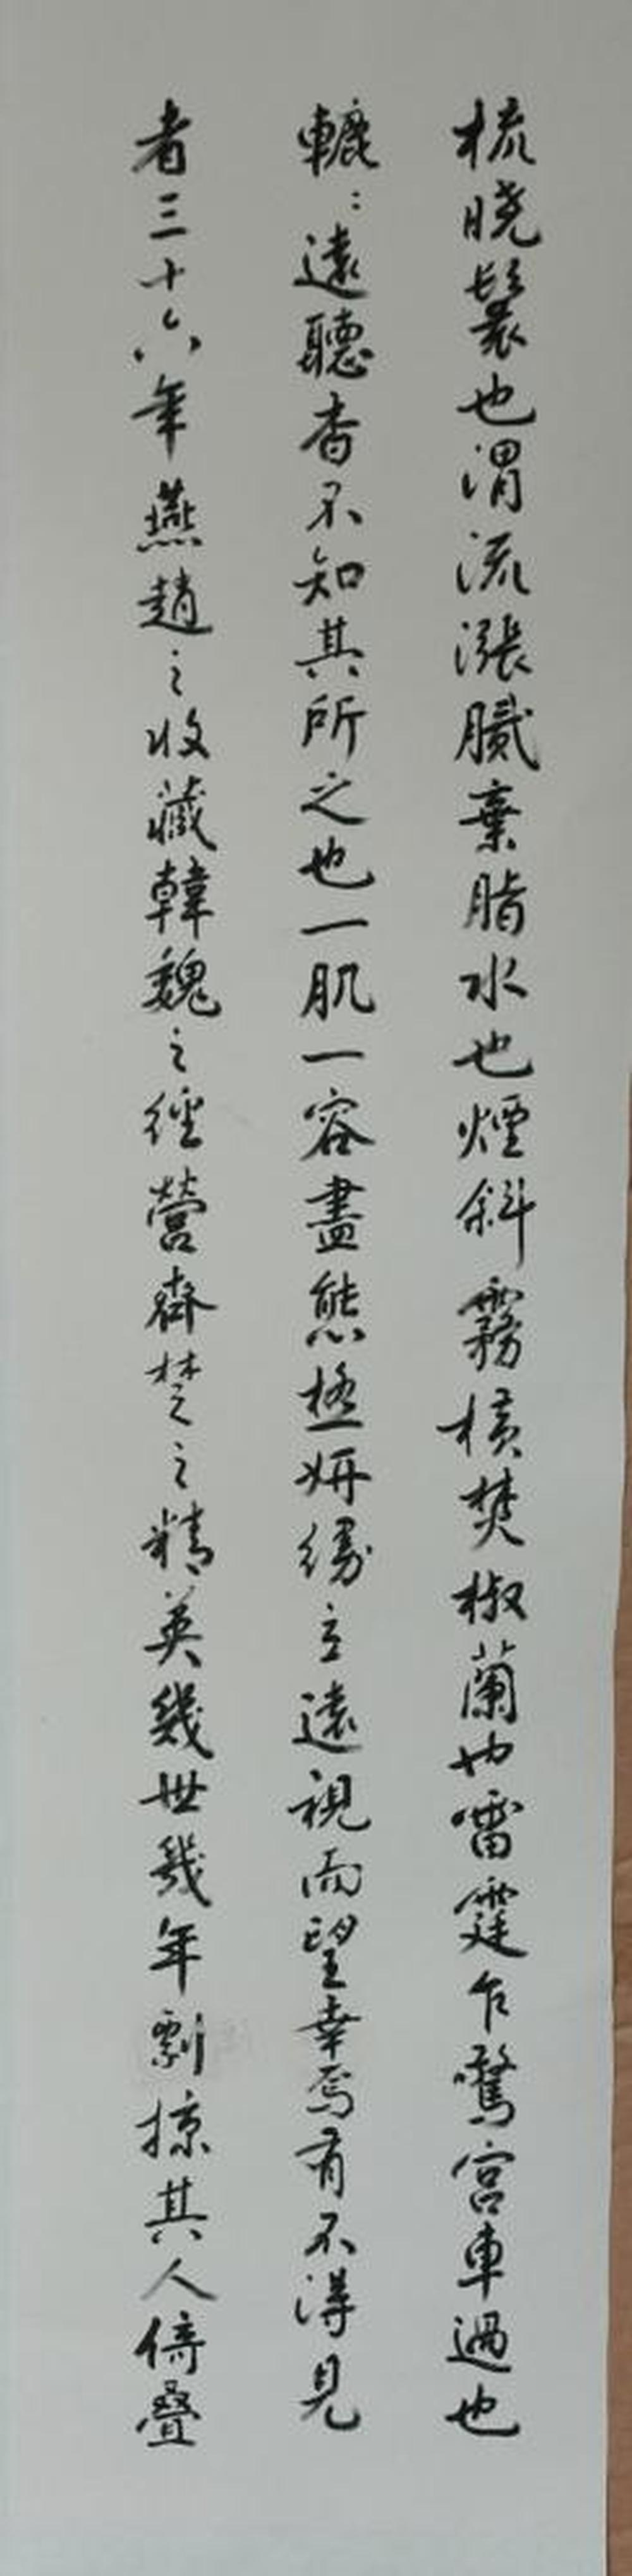 梳曉鬟也渭流漲膩棄脂水也煙斜霧橫焚椒蘭也雷霆乍驚宮車過也
轆〻遠聽杳不知其所之也一肌一容盡態極妍縵立遠視而望幸焉有不得見
者三十六年燕趙之收藏韓魏之經營齊楚之精英幾世幾年剽掠其人倚疊